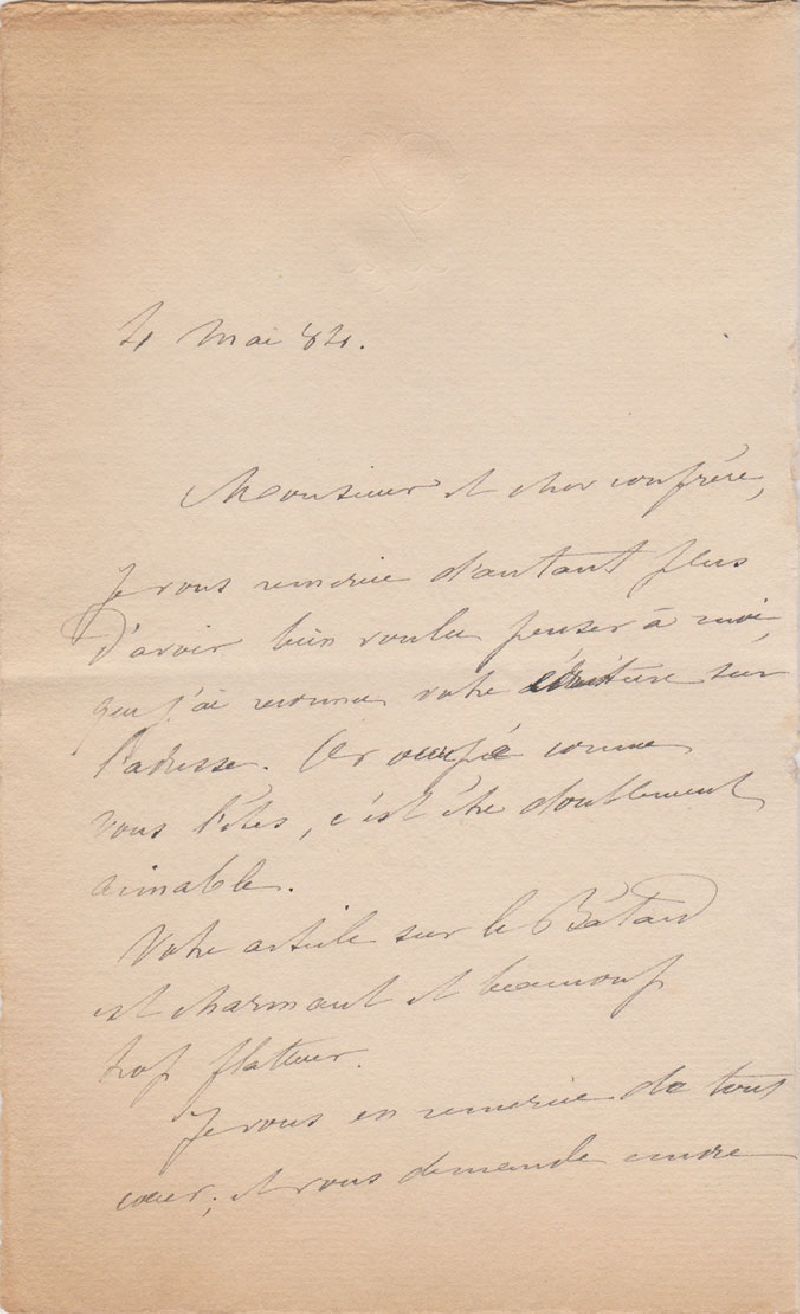 4 Mai 84.
Monsieur et cher confrère,
Je vous remercie d'autant plus
d'avoir bien voulu penser à moi,
que j'ai reconnu votre écriture sur
l'adresse. Or occupé comme
vous l'êtes, c'est être doublement
aimable.
Votre article sur le Bâtard
est charmant et beaucoup
trop flatteur.
Je vous en remercie de tout
cœur, et vous demande encore